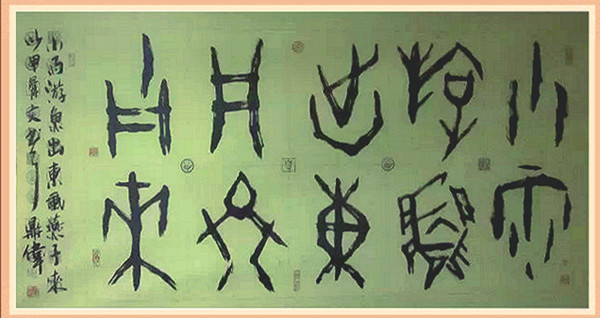 小雨
游魚
出東
風燕
子來
小雨游魚出東風燕子來
以甲骨文書之 鼎偉